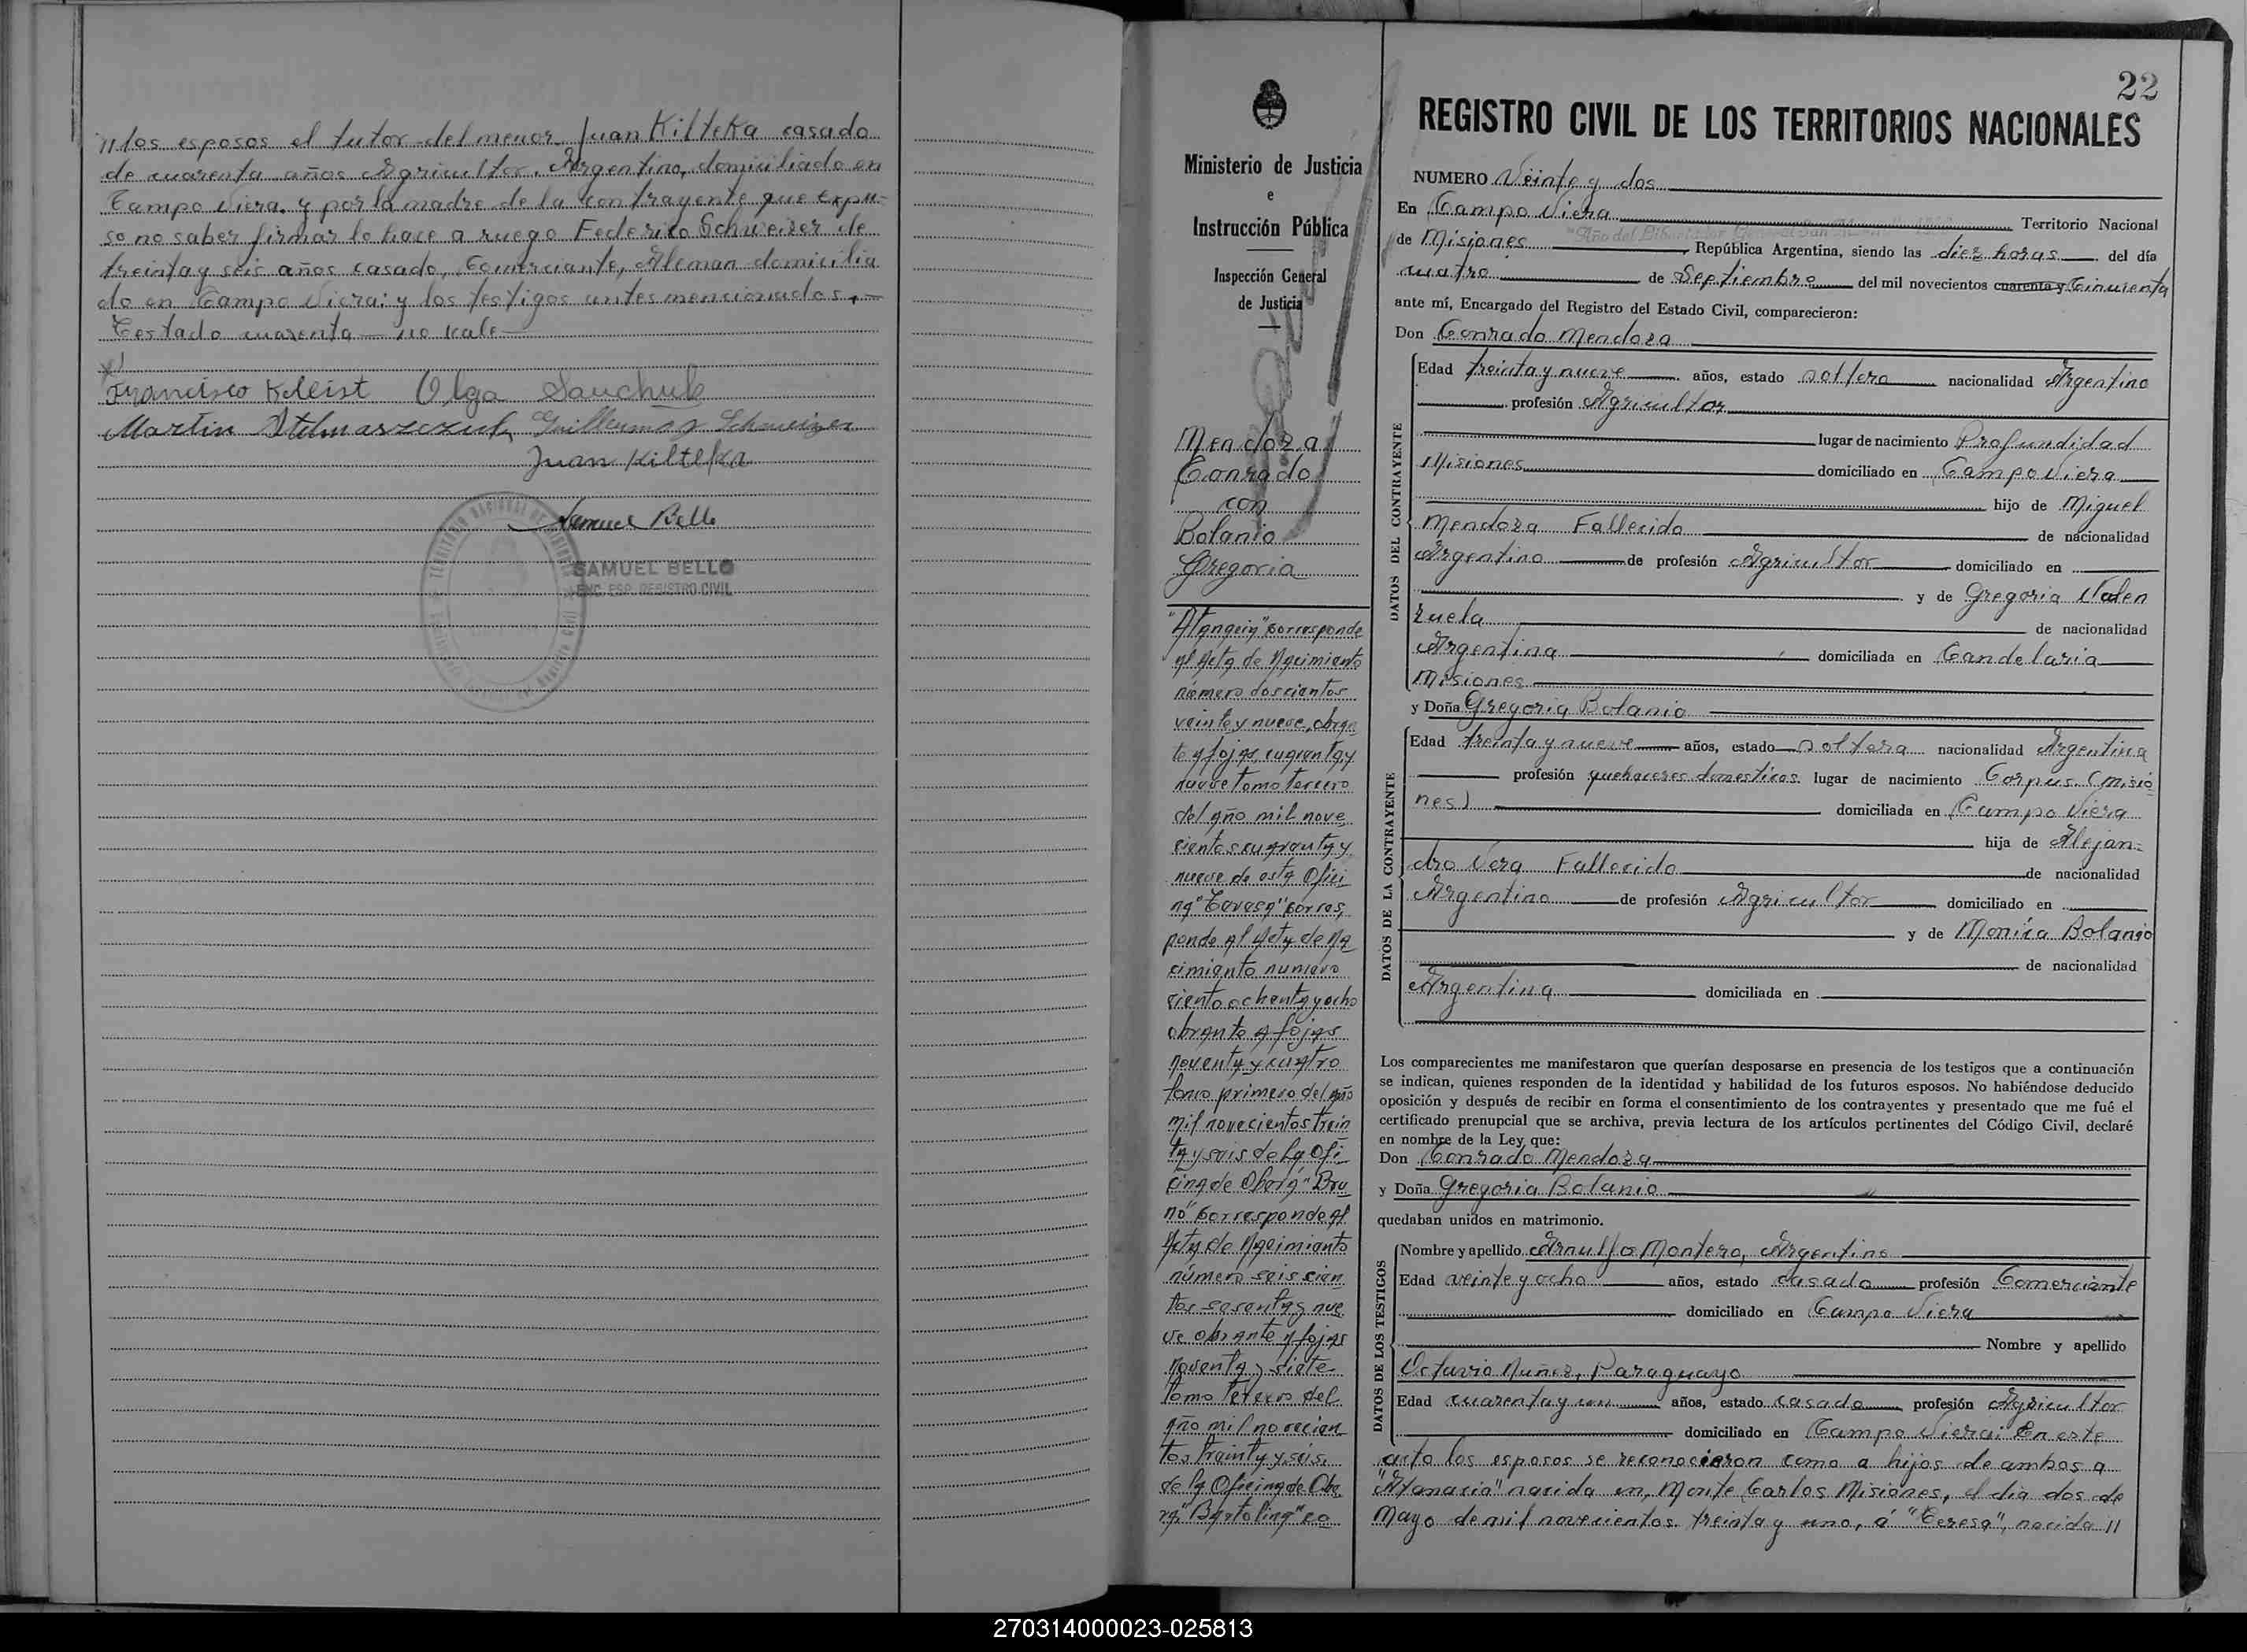 "los esposos el tutor del menor Juan Kilteka casado
de cuarenta años Agricultor, Argentino, domiciliado en
Campo Viera. y por la madre de la Contrayente que expu-
so no saber firmar lo hace a ruego Federico Schweizer de
treinta y seis años casado, Comerciante, Aleman domicilia
do en Campo Viera: y los testigos antes mencionados.-
Testado cuarenta - no vale -
Francisco Kleist Olga Sauchuk
Martin Guillermo Schweizer
Juan Kilteka
Samuel Bello
SAMUEL BELLO
ENC. ESP. REGISTRO CIVIL
Ministerio de Justicia
e
Instrucción Pública
Inspección General
de Justicia
Mendoza
Conrado
con
Bolanio
Gregoria
"Atanacia" corresponde
al Acta de Nacimiento
número doscientos
veinte y nueve, obran
te a fojas cuarenta y
nueve tomo tercero
del año mil nove
cientos cuarenta y
nueve de esta Ofici
na "Teresa" corres
ponde al Acta de Na
cimiento numero
ciento ochenta y ocho
obrante a fojas
noventa y cuatro
tomo primero del año
mil novecientos trein
ta y seis de la Ofi
cina de Oberá "Bru
no" corresponde al
Acta de Nacimiento
número seis cien
tos sesenta y nue
ve obrante a fojas
noventa y siete
tomo tercero del
año mil novecien
tos treinta y seis
de la Oficina de Obe
rá, "Bartolina" co
22
REGISTRO CIVIL DE LOS TERRITORIOS NACIONALES
NUMERO Veinte y dos
En Campo Viera Territorio Nacional
"Año del Libertador General San Martín 1950"
de Misiones, República Argentina, siendo las diez horas del día
cuatro de Septiembre del mil novecientos cuarenta y Cincuenta
ante mí, Encargado del Registro del Estado Civil, comparecieron:
Don Conrado Mendoza
DATOS DEL CONTRAYENTE
Edad treinta y nueve años, estado soltero nacionalidad Argentino
profesión Agricultor
lugar de nacimiento Profundidad
Misiones domiciliado en Campo Viera
hijo de Miguel
Mendoza Fallecido de nacionalidad
Argentino de profesión Agricultor domiciliado en
y de Gregoria Valen
zuela de nacionalidad
Argentina domiciliada en Candelaria
Misiones
y Doña Gregoria Bolanio
DATOS DE LA CONTRAYENTE
Edad treinta y nueve años, estado soltera nacionalidad Argentina
profesión quehaceres domesticos lugar de nacimiento Corpus (Misio
nes) domiciliada en Campo Viera
hija de Alejan-
dro Vera Fallecido de nacionalidad
Argentino de profesión Agricultor domiciliado en
y de Monica Bolanio
de nacionalidad
Argentina domiciliada en
Los comparecientes me manifestaron que querían desposarse en presencia de los testigos que a continuación
se indican, quienes responden de la identidad y habilidad de los futuros esposos. No habiéndose deducido
oposición y después de recibir en forma el consentimiento de los contrayentes y presentado que me fué el
certificado prenupcial que se archiva, previa lectura de los artículos pertinentes del Código Civil, declaré
en nombre de la Ley que:
Don Conrado Mendoza
y Doña Gregoria Bolanio
quedaban unidos en matrimonio.
DATOS DE LOS TESTIGOS
Nombre y apellido Arnulfo Montero, Argentino
Edad veinte y ocho años, estado casado profesión Comerciante
domiciliado en Campo Viera
Nombre y apellido
Octavio Nuñez, Paraguayo
Edad cuarenta y un años, estado casado profesión Agricultor
domiciliado en Campo Viera: En este
acto los esposos se reconocieron como a hijos de ambos a
"Atanacia" nacida en, Monte Carlos Misiones, el dia dos de
Mayo de mil novecientos treinta y uno, á "Teresa", nacida "
270314000023-025813